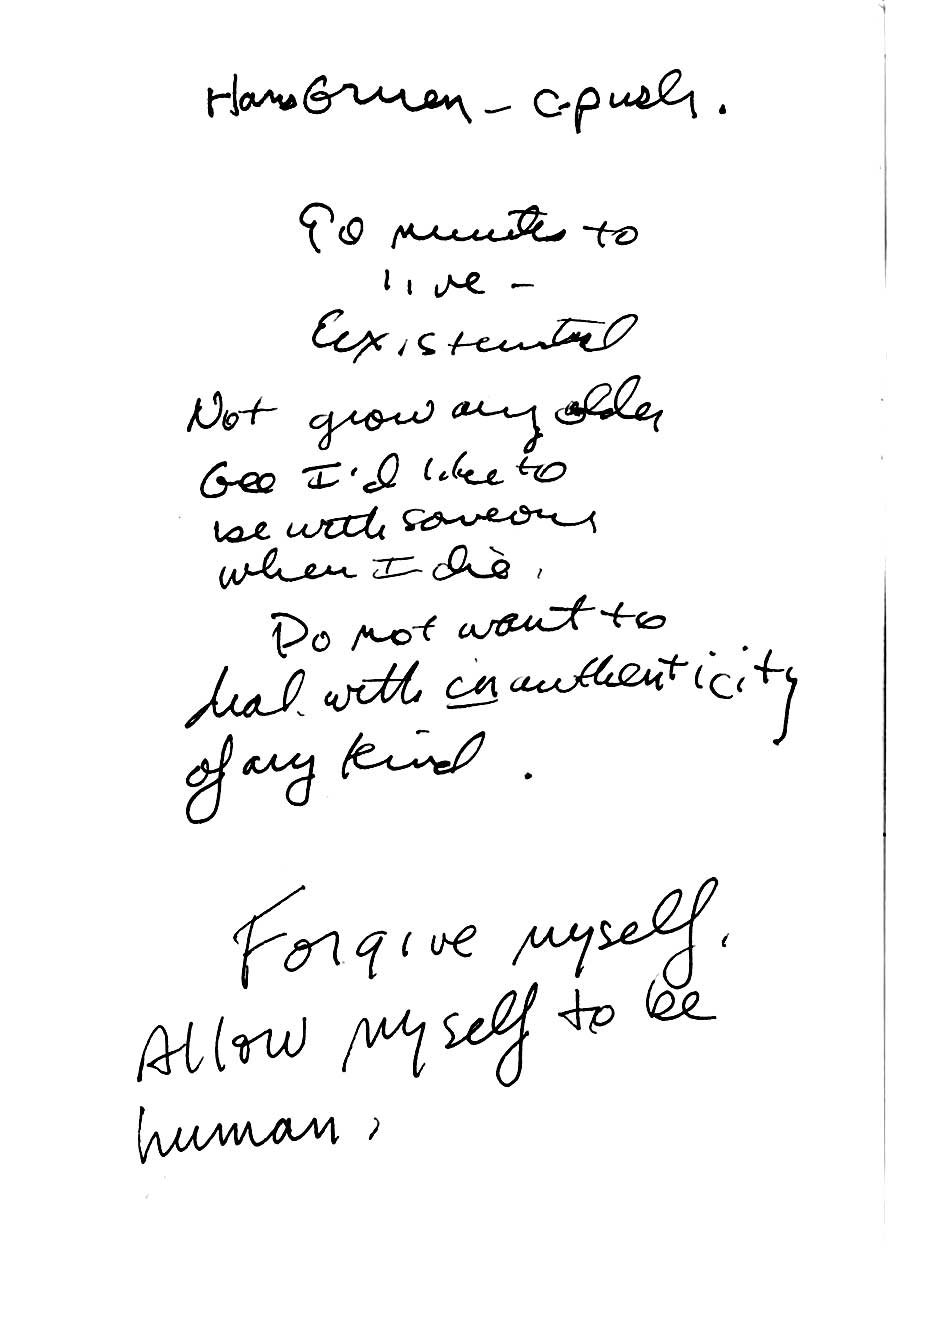 Hans Gruen - c-push.
90 minutes to
live -
Eexistential
Not grow any older
Gee I'd like to
be with someone
when I die.
Do not want to
deal with inauthenticity
of any kind.
Forgive myself.
Allow myself to be
human.